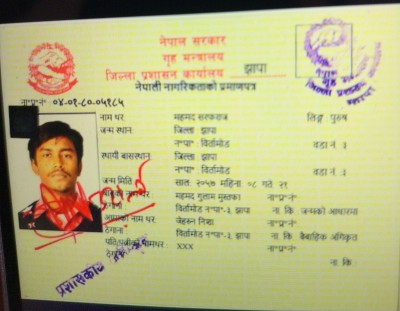 नेपाल सरकार
गृह मन्त्रालय
जिल्ला प्रशासन कार्यालय झापा
नेपाली नागरिकताको प्रमाणपत्र
ना॰प्र॰नं॰ ०४-०१-८०-०५९८५
नाम थर: महमद सरफराज लिङ्ग: पुरुष
जन्म स्थान: जिल्ला: झापा
न॰पा॰ विर्तामोड वडा नं :३
स्थायी बासस्थान: जिल्ला: झापा
न॰पा॰ विर्तामोड वडा नं :३
जन्म मिति: साल: २०५७ महिना: ०८ गते: २९
बाबुको नाम थर: महमद गुलाम मुस्तफा ना॰प्र॰नं॰
ठेगाना: विर्तामोड न॰पा॰-३, झापा ना कि: जन्मको आधारमा
आमाको नाम थर: जेहरुन निशा ना॰प्र॰नं॰
ठेगाना: विर्तामोड न॰पा॰-३, झापा ना कि: बैबाहिक अंगिकृत
पति/पत्नीको नामथर: XXX ना॰प्र॰नं॰
ठेगाना: ना कि:
प्रशासकीय